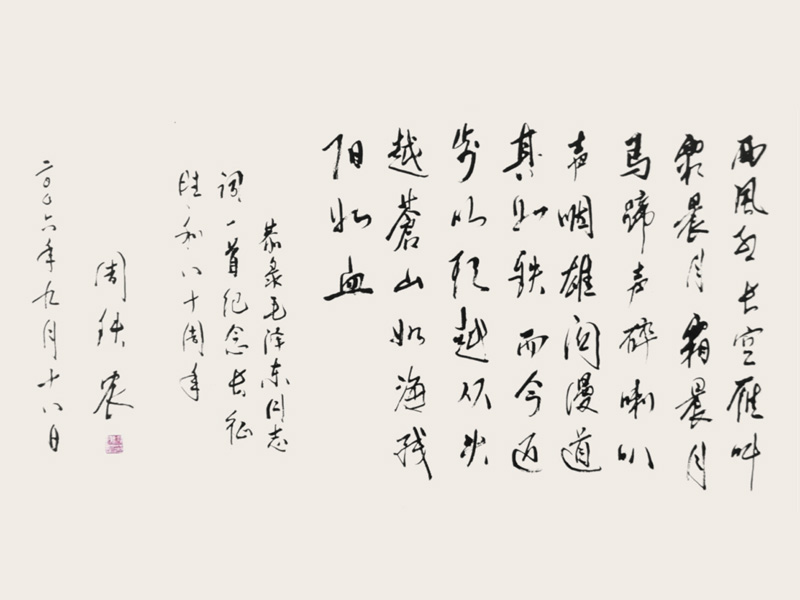 西风烈长空雁叫
霜晨月霜晨月
马蹄声碎喇叭
声咽雄关漫道
真如铁而今迈
步从头越从头
越蒼山如海残
阳如血
恭录毛泽东同志
词一首纪念长征
胜利八十周年
周铁农
二〇一六年九月十八日